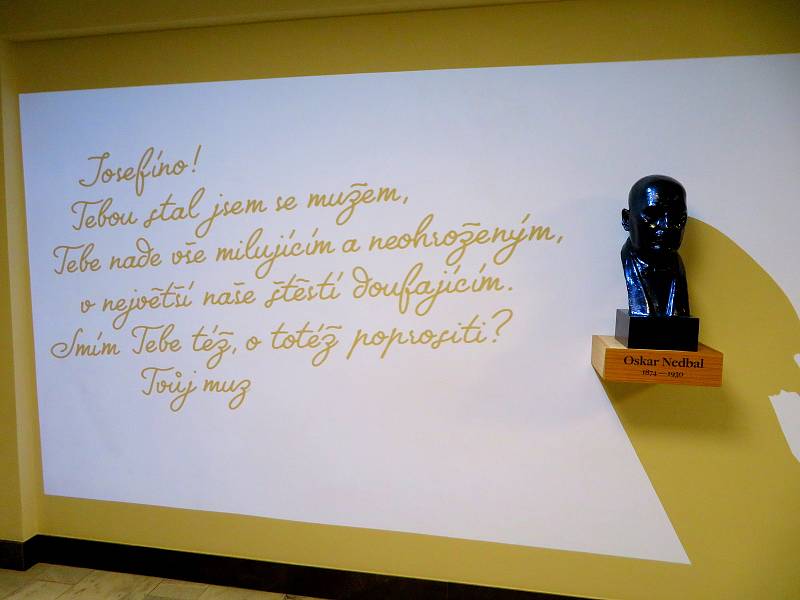 Josefíno!
Tebou stal jsem se mužem,
Tebe nade vše milujícím a neohroženým,
v největší naše štěstí doufajícím.
Smím Tebe též, o totéž poprositi?
Tvůj muz
Oskar Nedbal
1874 — 1930